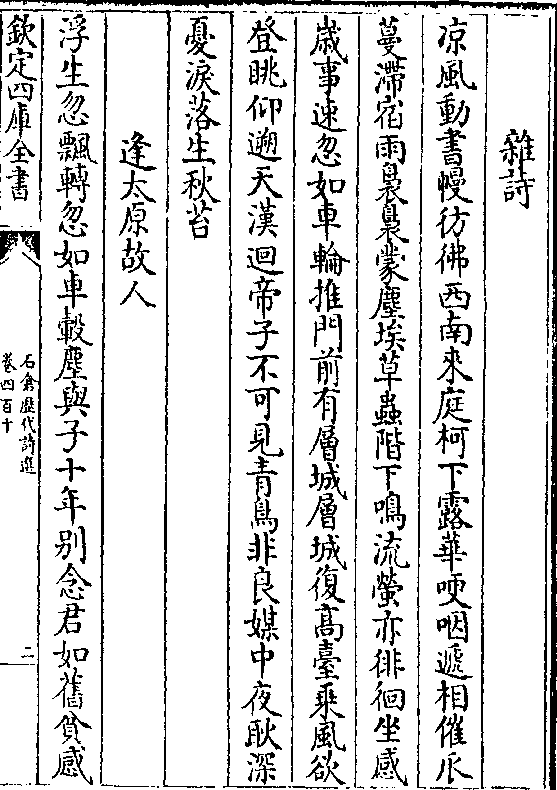 雜詩
凉風動書幔彷彿西南來庭柯下露華哽咽遞相催爪
蔓滯宿雨裊裊蒙塵埃草蟲階下鳴流螢亦徘徊坐感
歲事速忽如車輪推門前有層城層城復髙臺乗風欲
登眺仰遡天漢迴帝子不可見青鳥非良媒中夜耿深
憂淚落生秋苔
逢太原故人
浮生忽飄轉忽如車轂塵與子十年别念君如舊貧感
欽定四庫全書
石倉歷代詩選
卷四百十
二